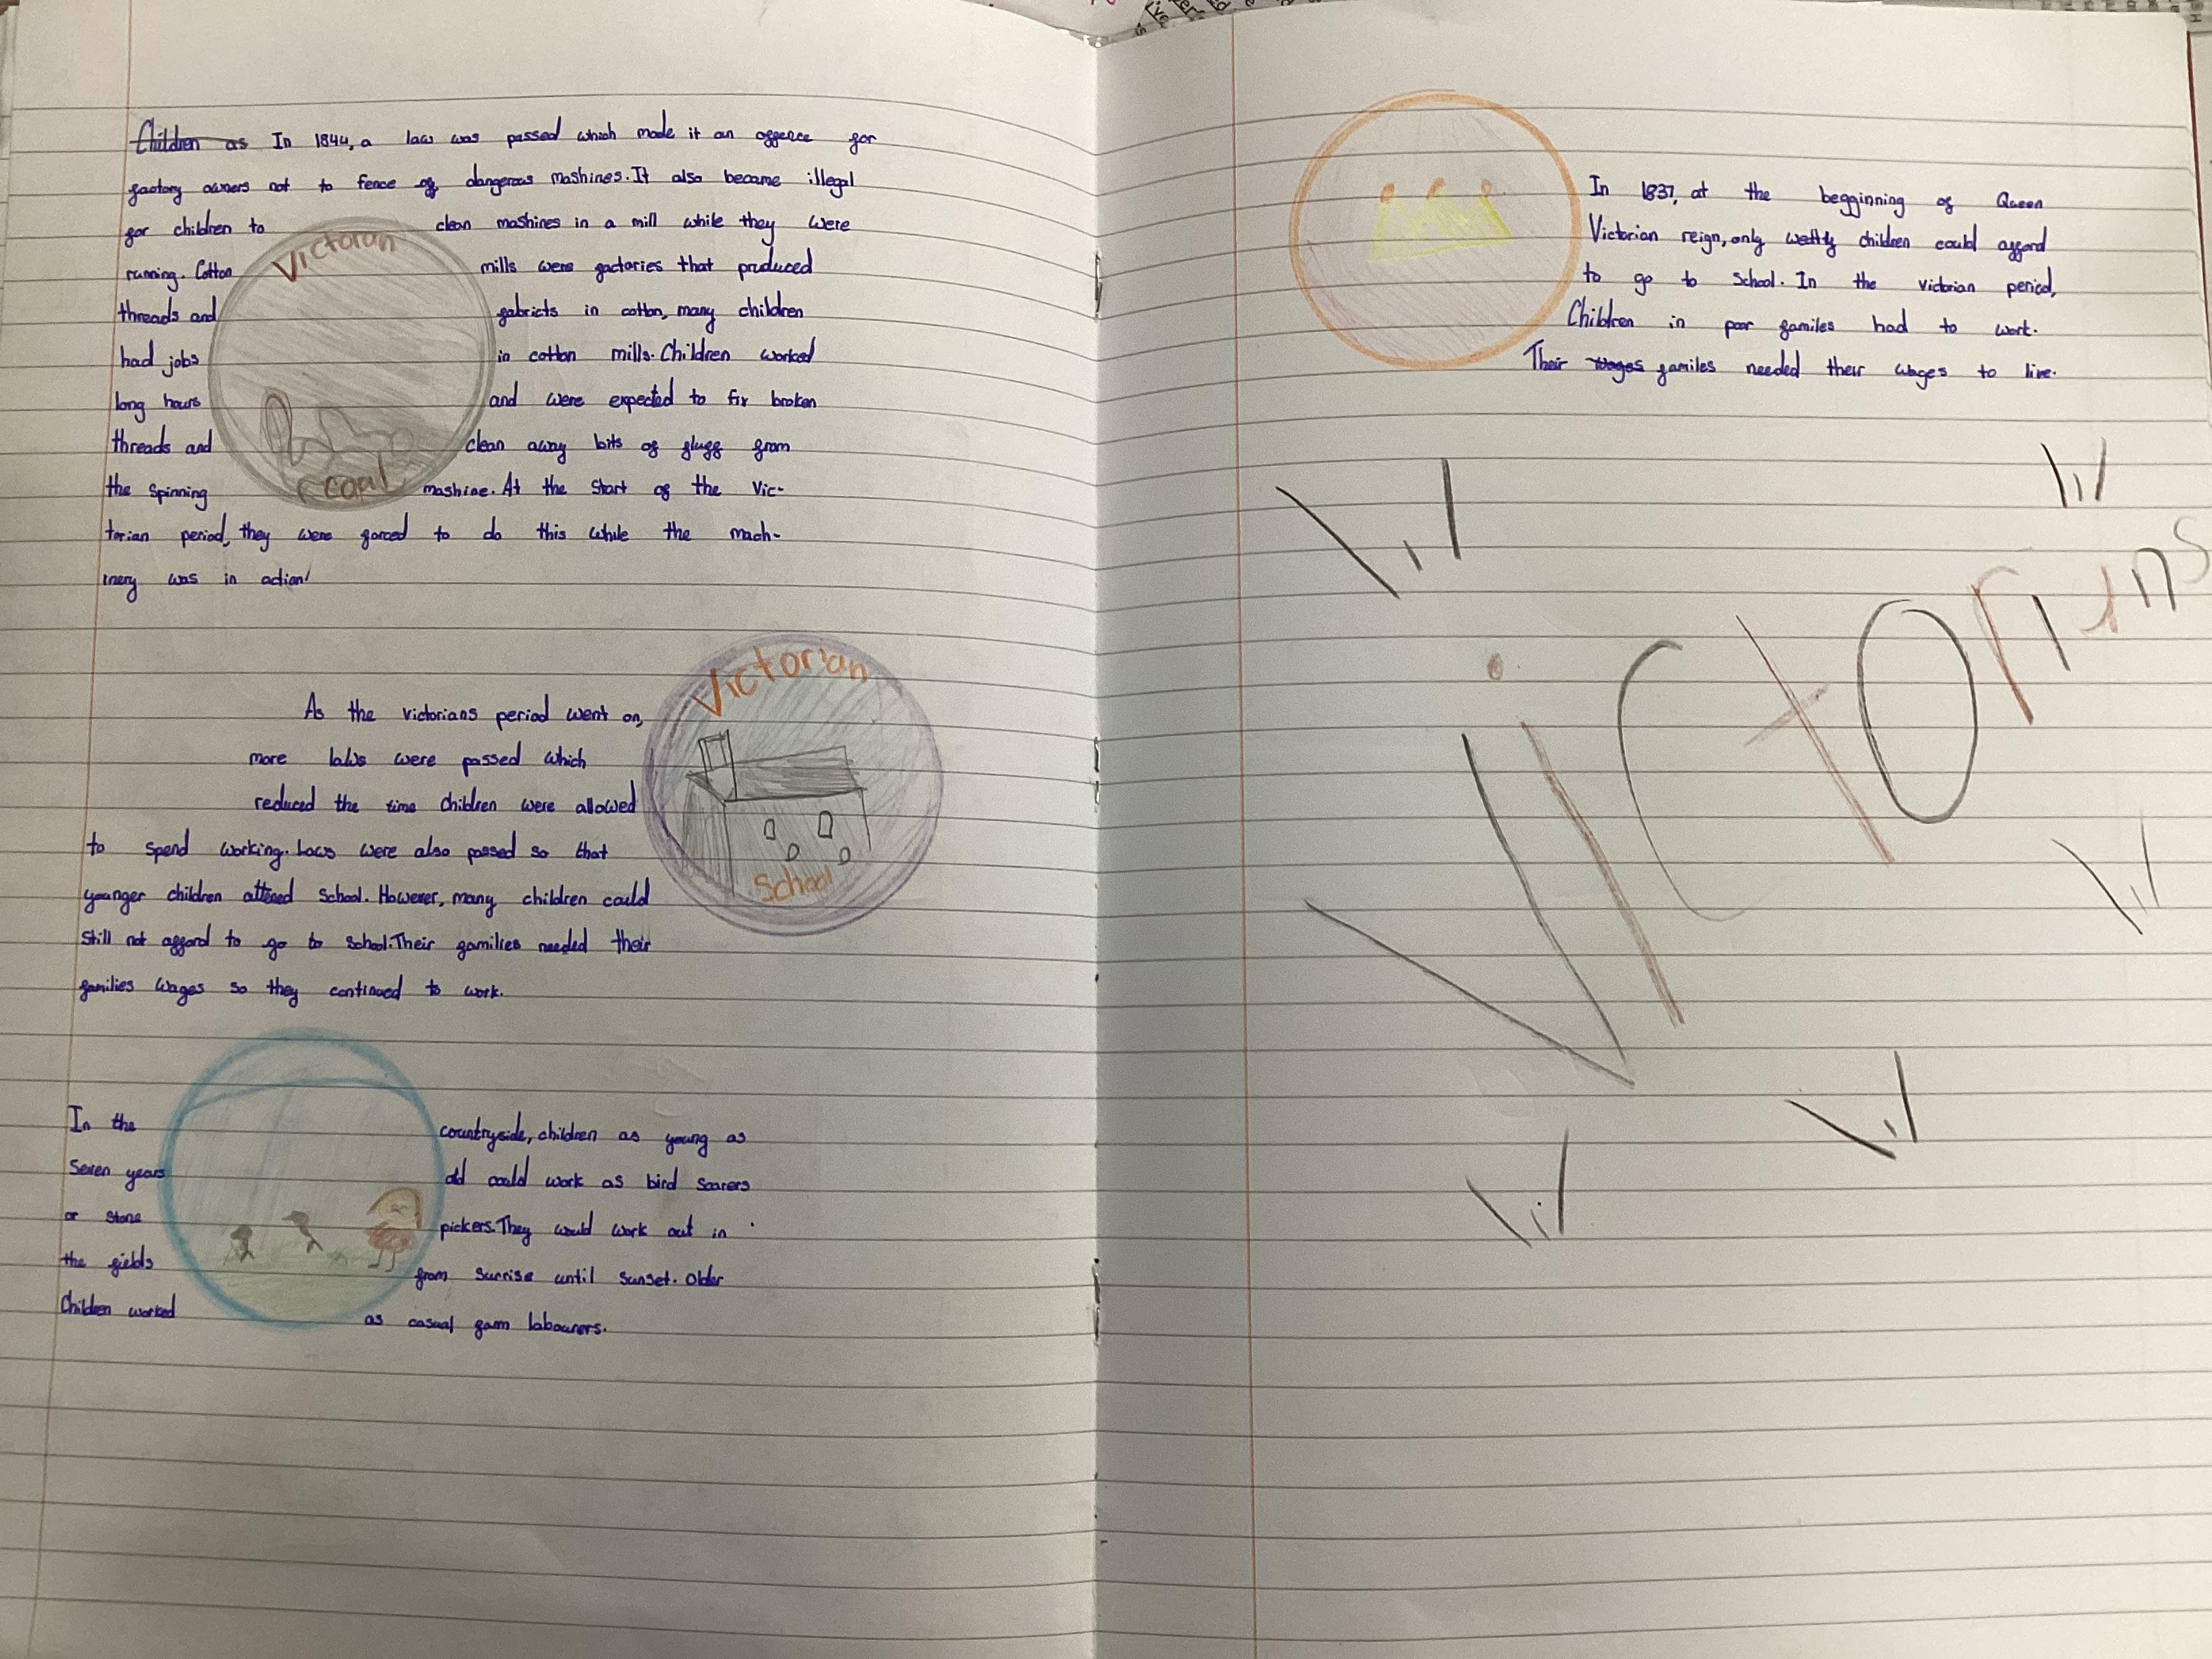 Children as In 1844, a law was passed which made it an offence for
factory owners not to fence of dangerous mashines. It also became illegal
for children to clean mashines in a mill while they were
running. Cotton mills were factories that produced
threads and fabricts in cotton, many children
had jobs in cotton mills. Children worked
long hours and were expected to fix broken
threads and clean away bits of fluff from
the spinning mashine. At the start of the Vic-
torian period, they were forced to do this while the mach-
inery was in action!
Victorian
Coal
As the victorians period went on,
more laws were passed which
reduced the time children were allowed
to spend working. Laws were also passed so that
younger children attened School. However, many children could
Still not afford to go to School. Their families needed their
families wages so they continued to work.
Victorian
School
In the countryside, children as young as
Seven years old could work as bird Scarers
or stone pickers. They would work out in
the fields from Sunrise until Sunset. Older
Children worked as casual farm labourers.
In 1837, at the begginning of Queen
Victorian reign, only children could afford
to go to School. In the victorian period,
Children in poor familes had to work.
Their wages familes needed their wages to live.
Victorians